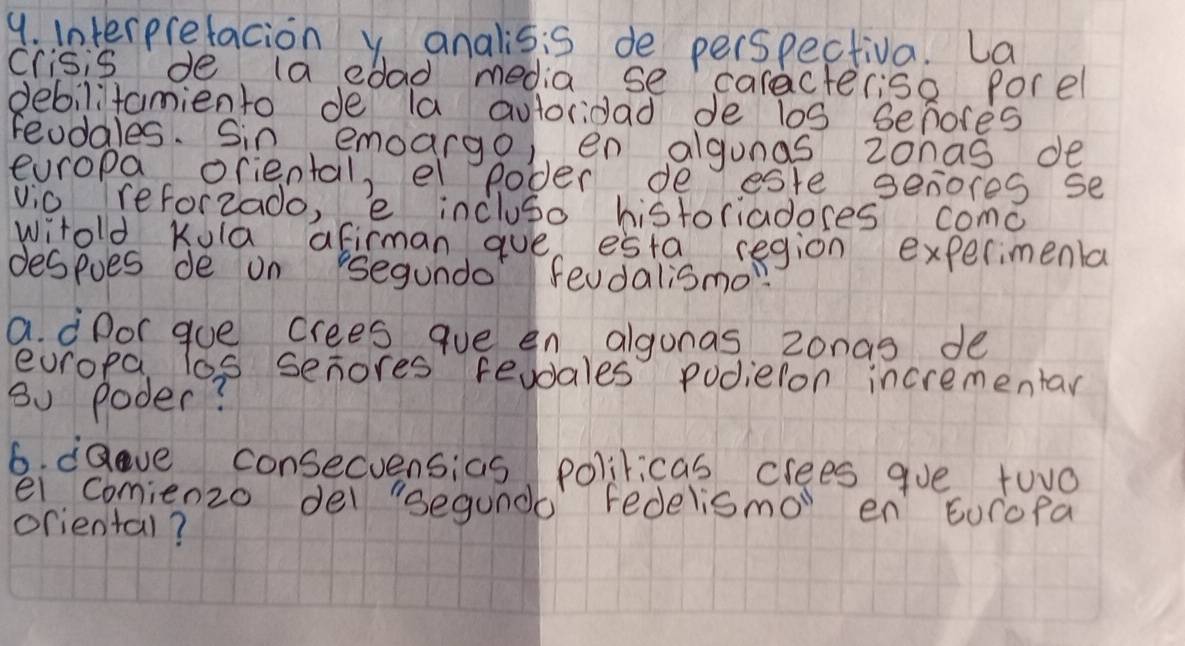 4. Interpretación y analisis de perspectiva. La
crisis de la edad media se caracteriso por el
debilitamiento de la autoridad de los señores
feudales. Sin emoargo, en algunas zonas de
europa oriental, el poder de este señores se
vio reforzado, e incluso historiadores como
witold Kula afirman que esta region experimenta
despues de un "segundo feudalismo".
a. ¿Por que crees que en algunas zonas de
europa los señores feudales pudieron incrementar
su poder?
b. ¿Que consecuensias politicas crees que tuvo
el comienzo del "segundo fedelismo" en Europa
oriental?